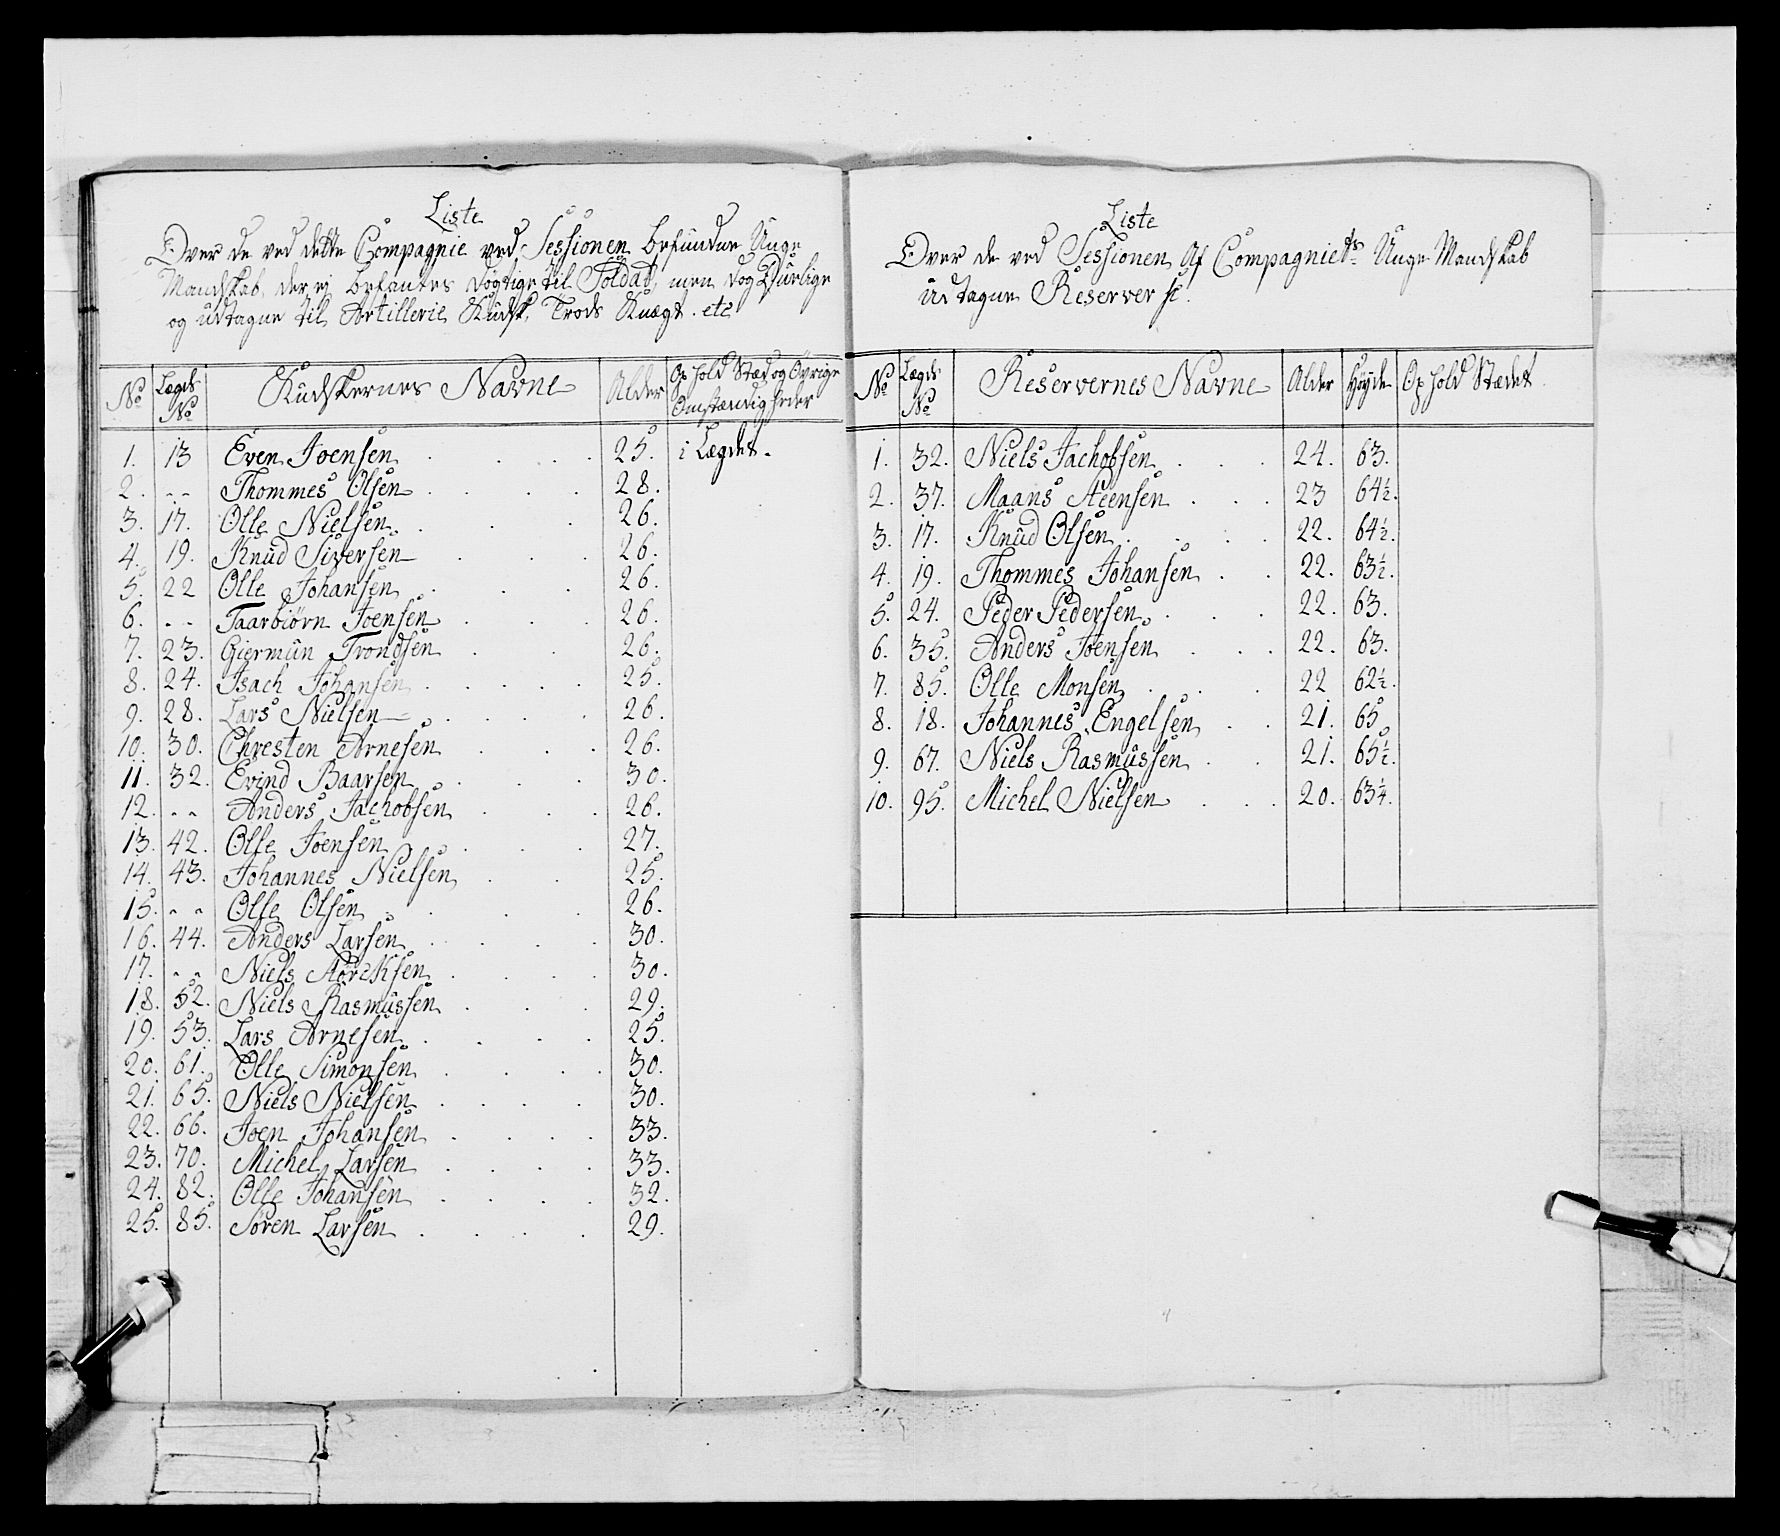 Liste
Over de ved dette Compagnie ved Sessionen befundne Unge
Mandskab, der ej befantes Dögtige til Soldat, men dog Duelige
og udtagne til Artillerie Kudsk, Trods Knægt. etc
No Lægds No Kudskernes Navne Alder Ophold Stæd og Övrige Omstændigheder
1. 13 Even Joensen 25. i Lægdet.
2. " " Thommes Olsen 28.
3. 17. Olle Nielsen 26.
4. 19. Knud Siversen 26.
5. 22 Olle Johansen 26.
6. " " Taarbiörn Joensen 26.
7. 23. Giermun Trondsen 26.
8. 24. Isach Johansen 25.
9. 28. Lars Nielsen 26.
10. 30. Chresten Arnesen 26.
11. 32. Evind Baarsen 30.
12. " " Anders Jachobsen 26.
13. 42. Olle Joensen 27.
14. 43. Johannes Nielsen 25.
15. " " Olle Olsen 26.
16. 44. Anders Larsen 30.
17. " " Niels 30.
18. 52. Niels Rasmussen 29.
19. 53. Lars Arnesen 25.
20. 61. Olle Simonsen 30.
21. 65. Niels Nielsen 30.
22. 66. Joen Johansen 33.
23. 70. Michel Larsen 33.
24. 82. Olle Johansen 32.
25. 85. Sören Larsen 29.
Liste
Over de ved Sessionen Af Compagniets Unge Mandskab
udtagne Reserver
No Lægds No Reservernes Navne Alder Høyde Ophold Stædet
1. 32. Niels Jachobsen 24. 63.
2. 37. Maans Steensen 23 64½.
3. 17. Knud Olsen 22. 64½.
4. 19. Thommes Johansen 22. 63½.
5. 24. Peder Pedersen 22. 63.
6. 35. Anders Joensen 22. 63.
7. 85. Olle Monsen 22 62½.
8. 18. Johannes Engelsen 21. 65
9. 67. Niels Rasmussen 21. 65½.
10. 95. Michel Nielsen 20. 63¼.